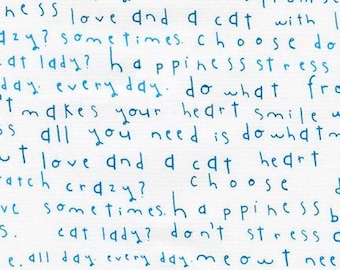 ness love and a cat with l
razy? sometimes. choose do
cat lady? happiness stress
day. every day. do what fro
't makes your heart smile w
os all you need is do what m
out love and a cat heart
ratch crazy? choose d
ve sometimes. happiness b
s. cat lady? don't stress c
e. all day. every day. meow t nee